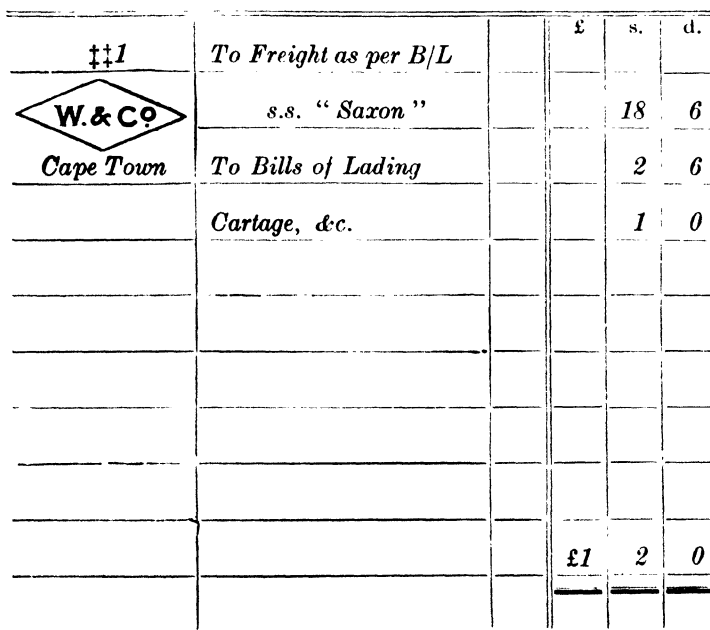 £ s. d.
‡‡1 To Freight as per B/L
W. & Co. s.s. “ Saxon ” 18 6
Cape Town To Bills of Lading 2 6
Cartage, &c. 1 0
£1 2 0